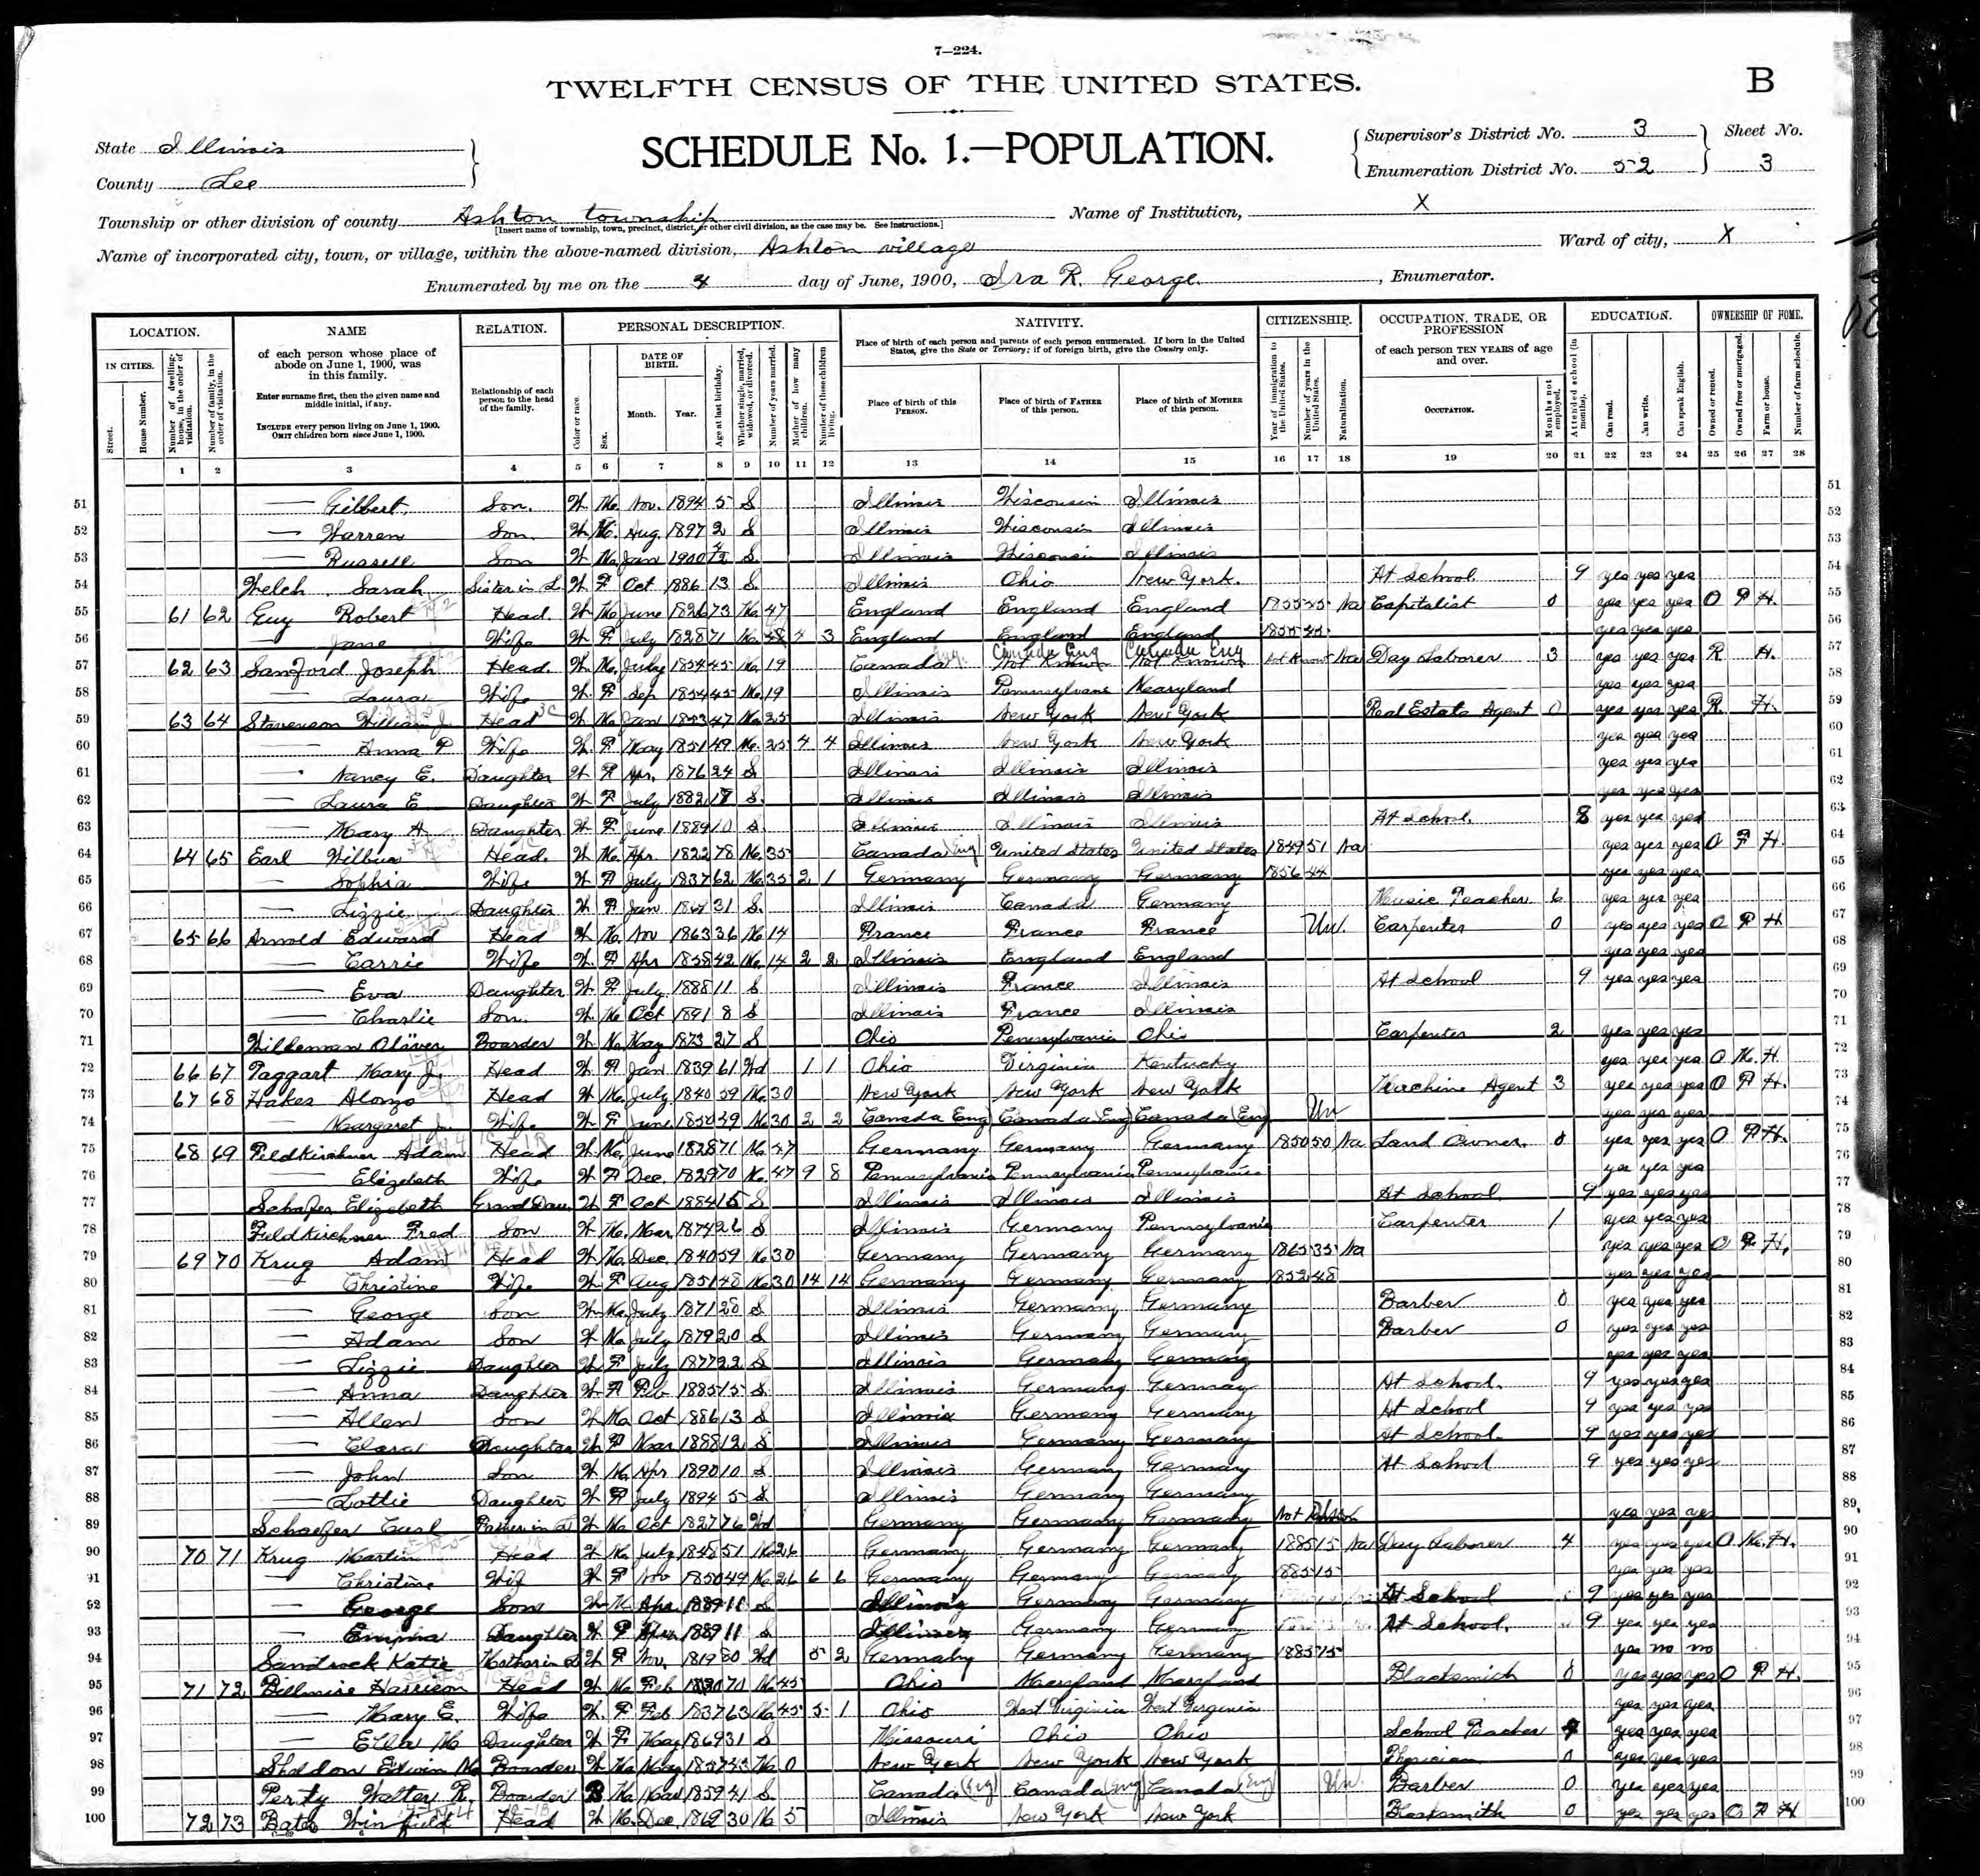 7—224.
TWELFTH CENSUS OF THE UNITED STATES.
B
State Illinois
County Lee
SCHEDULE No. 1.—POPULATION.
Supervisor's District No. 3
Enumeration District No. 52
Sheet No.
3
Township or other division of county Ashton township
[Insert name of township, town, precinct, district, or other civil division, as the case may be. See instructions.]
Name of Institution, X
Name of incorporated city, town, or village, within the above-named division, Ashton village
Ward of city, X
Enumerated by me on the 4 day of June, 1900, Ira R. George, Enumerator.
LOCATION. NAME RELATION. PERSONAL DESCRIPTION. NATIVITY. CITIZENSHIP. OCCUPATION, TRADE, OR PROFESSION EDUCATION. OWNERSHIP OF HOME.
IN CITIES. Street. House Number. Number of dwelling-house, in the order of visitation. Number of family, in the order of visitation.
of each person whose place of abode on June 1, 1900, was in this family.
Enter surname first, then the given name and middle initial, if any.
INCLUDE every person living on June 1, 1900.
OMIT children born since June 1, 1900.
Relationship of each person to the head of the family.
Color or race. Sex. DATE OF BIRTH. Month. Year. Age at last birthday. Whether single, married, widowed, or divorced. Number of years married. Mother of how many children. Number of these children living.
Place of birth of each person and parents of each person enumerated. If born in the United States, give the State or Territory; if of foreign birth, give the Country only.
Place of birth of this PERSON. Place of birth of FATHER of this person. Place of birth of MOTHER of this person.
Year of immigration to the United States. Number of years in the United States. Naturalization.
of each person TEN YEARS of age and over.
OCCUPATION. Months not employed.
Attended school (in months). Can read. Can write. Can speak English.
Owned or rented. Owned free or mortgaged. Farm or house. Number of farm schedule.
1 2 3 4 5 6 7 8 9 10 11 12 13 14 15 16 17 18 19 20 21 22 23 24 25 26 27 28
51 — Gilbert Son W M Nov. 1894 5 S Illinois Wisconsin Illinois 51
52 — Warren Son W M Aug. 1897 2 S Illinois Wisconsin Illinois 52
53 — Russell Son W M Jan 1900 4/12 S Illinois Wisconsin Illinois 53
54 Welch Sarah Sister in L W F Oct 1886 13 S Illinois Ohio New York. At School 9 yes yes yes 54
55 61 62 Guy Robert Head W M June 1826 73 M 47 England England England 1855 Na Capitalist 0 yes yes yes O F H. 55
56 — Jane Wife W F July 1828 71 M 4 3 England England England 1855 45 yes yes yes 56
57 62 63 Sanford Joseph Head W M July 1854 45 M 19 Canada Eng. Canada Eng Canada Eng Na Day Laborer 3 yes yes yes R H. 57
58 — Laura Wife W F Sep 1854 45 M 19 Illinois Pennsylvania Maryland yes yes yes 58
59 63 64 Stevenson William J Head W M Jan 1853 47 M 25 Illinois New York New York Real Estate Agent 0 yes yes yes R H. 59
60 — Anna P Wife W F May 1851 49 M 25 4 4 Illinois New York New York yes yes yes 60
61 — Nancy E. Daughter W F Apr. 1876 24 S Illinois Illinois Illinois yes yes yes 61
62 — Laura E Daughter W F July 1882 S Illinois Illinois Illinois yes yes yes 62
63 — Mary A Daughter W F June 1889 10 S Illinois Illinois Illinois At School. 8 yes yes yes 63
64 64 65 Earl Wilbur Head W M Apr. 1822 78 M 35 Canada Eng United States United States 1849 51 Na yes yes yes O F H. 64
65 — Sophia Wife W F July 1837 62 M 35 2 1 Germany Germany Germany 1856 44 yes yes yes 65
66 — Lizzie Daughter W F Jan 31 S Illinois Canada Germany Music Teacher 6 yes yes yes 66
67 65 66 Arnold Edward Head W M Nov 1863 36 M 14 France France France Un. Carpenter 0 yes yes yes O F H 67
68 — Carrie Wife W F Apr 1858 42 M 14 2 2 Illinois England England yes yes yes 68
69 — Eva Daughter W F July 1888 11 S Illinois France Illinois At School 9 yes yes yes 69
70 — Charlie Son W M Oct 1891 8 S Illinois France Illinois 70
71 Oliver Boarder W M May 1873 27 S Ohio Pennsylvania Ohio Carpenter 2 yes yes yes 71
72 66 67 Taggart Mary J. Head W F Jan 1839 61 Wd 1 1 Ohio Virginia Kentucky yes yes yes O M H 72
73 67 68 Hakes Alonzo Head W M July 1840 59 M 30 New York New York New York Machine Agent 3 yes yes yes O F H. 73
74 — Margaret J. Wife W F June 1850 49 M 30 2 2 Canada Eng Canada Eng Canada Eng Un yes yes yes 74
75 68 69 Feldkirchner Adam Head W M June 1828 71 M 47 Germany Germany Germany 1850 50 Na Land Owner. 0 yes yes yes O F H. 75
76 — Elizabeth Wife W F Dec. 1829 70 M 47 9 8 Pennsylvania Pennsylvania Pennsylvania yes yes yes 76
77 Schafer Elizabeth Grand Dau. W F Oct 1884 15 S Illinois Illinois Illinois At School 9 yes yes yes 77
78 Feldkirchner Fred Son W M Mar. 1874 26 S Illinois Germany Pennsylvania Carpenter 1 yes yes yes 78
79 69 70 Krug Adam Head W M Dec. 1840 59 M 30 Germany Germany Germany 1865 35 Na yes yes yes O F H. 79
80 — Christine Wife W F Aug 1851 48 M 30 14 14 Germany Germany Germany 1852 48 yes yes yes 80
81 — George Son W M July 1871 28 S Illinois Germany Germany Barber 0 yes yes yes 81
82 — Adam Son W M July 1879 20 S Illinois Germany Germany Barber 0 yes yes yes 82
83 — Lizzie Daughter W F July 1877 22 S Illinois Germany Germany yes yes yes 83
84 — Anna Daughter W F Feb 1885 15 S Illinois Germany Germany At School. 9 yes yes yes 84
85 — Allen Son W M Oct 1886 13 S Illinois Germany Germany At School 9 yes yes yes 85
86 — Clara Daughter W F Mar 1888 12 S Illinois Germany Germany At School 9 yes yes yes 86
87 — John Son W M Apr 1890 10 S Illinois Germany Germany At School 9 yes yes yes 87
88 — Lottie Daughter W F July 1894 5 S Illinois Germany Germany 88
89 Schaefer Father in L W M Oct 1827 76 Wd Germany Germany Germany Not yes yes yes 89
90 70 71 Krug Martin Head W M July 1848 51 M 26 Germany Germany Germany 1885 15 Na Day Laborer 4 yes yes yes O M. H. 90
91 — Christine Wif W F Nov 1850 49 M 26 6 6 Germany Germany Germany 1885 15 yes yes yes 91
92 — George Son W M Apr 1889 11 S Illinois Germany Germany At School 9 yes yes yes 92
93 — Emma Daughter W F Apr 1889 11 S Illinois Germany Germany At School. 9 yes yes yes 93
94 Sandrock Katie Mother in L W F Nov. 1819 80 Wd 5 2 Germany Germany Germany 1885 15 yes no no 94
95 71 72 Billmire Harrison Head W M Feb 70 M 45 Ohio Maryland Maryland Blacksmith 0 yes yes yes O F H. 95
96 — Mary E. Wife W F Feb 1837 63 M 45 5 1 Ohio West Virginia West Virginia yes yes yes 96
97 — Ella M Daughter W F May 1869 31 S Missouri Ohio Ohio School Teacher yes yes yes 97
98 Sheldon Edwin M Boarder W M May 1857 43 M 0 New York New York New York Physician 0 yes yes yes 98
99 Walter R. Boarder B M Mar 1859 41 S Canada (Eng) Canada Eng Canada Eng Un. Barber 0 yes yes yes 99
100 72 73 Bates Winfield Head W M Dec. 1869 30 M 5 Illinois New York New York Blacksmith 0 yes yes yes O F H 100